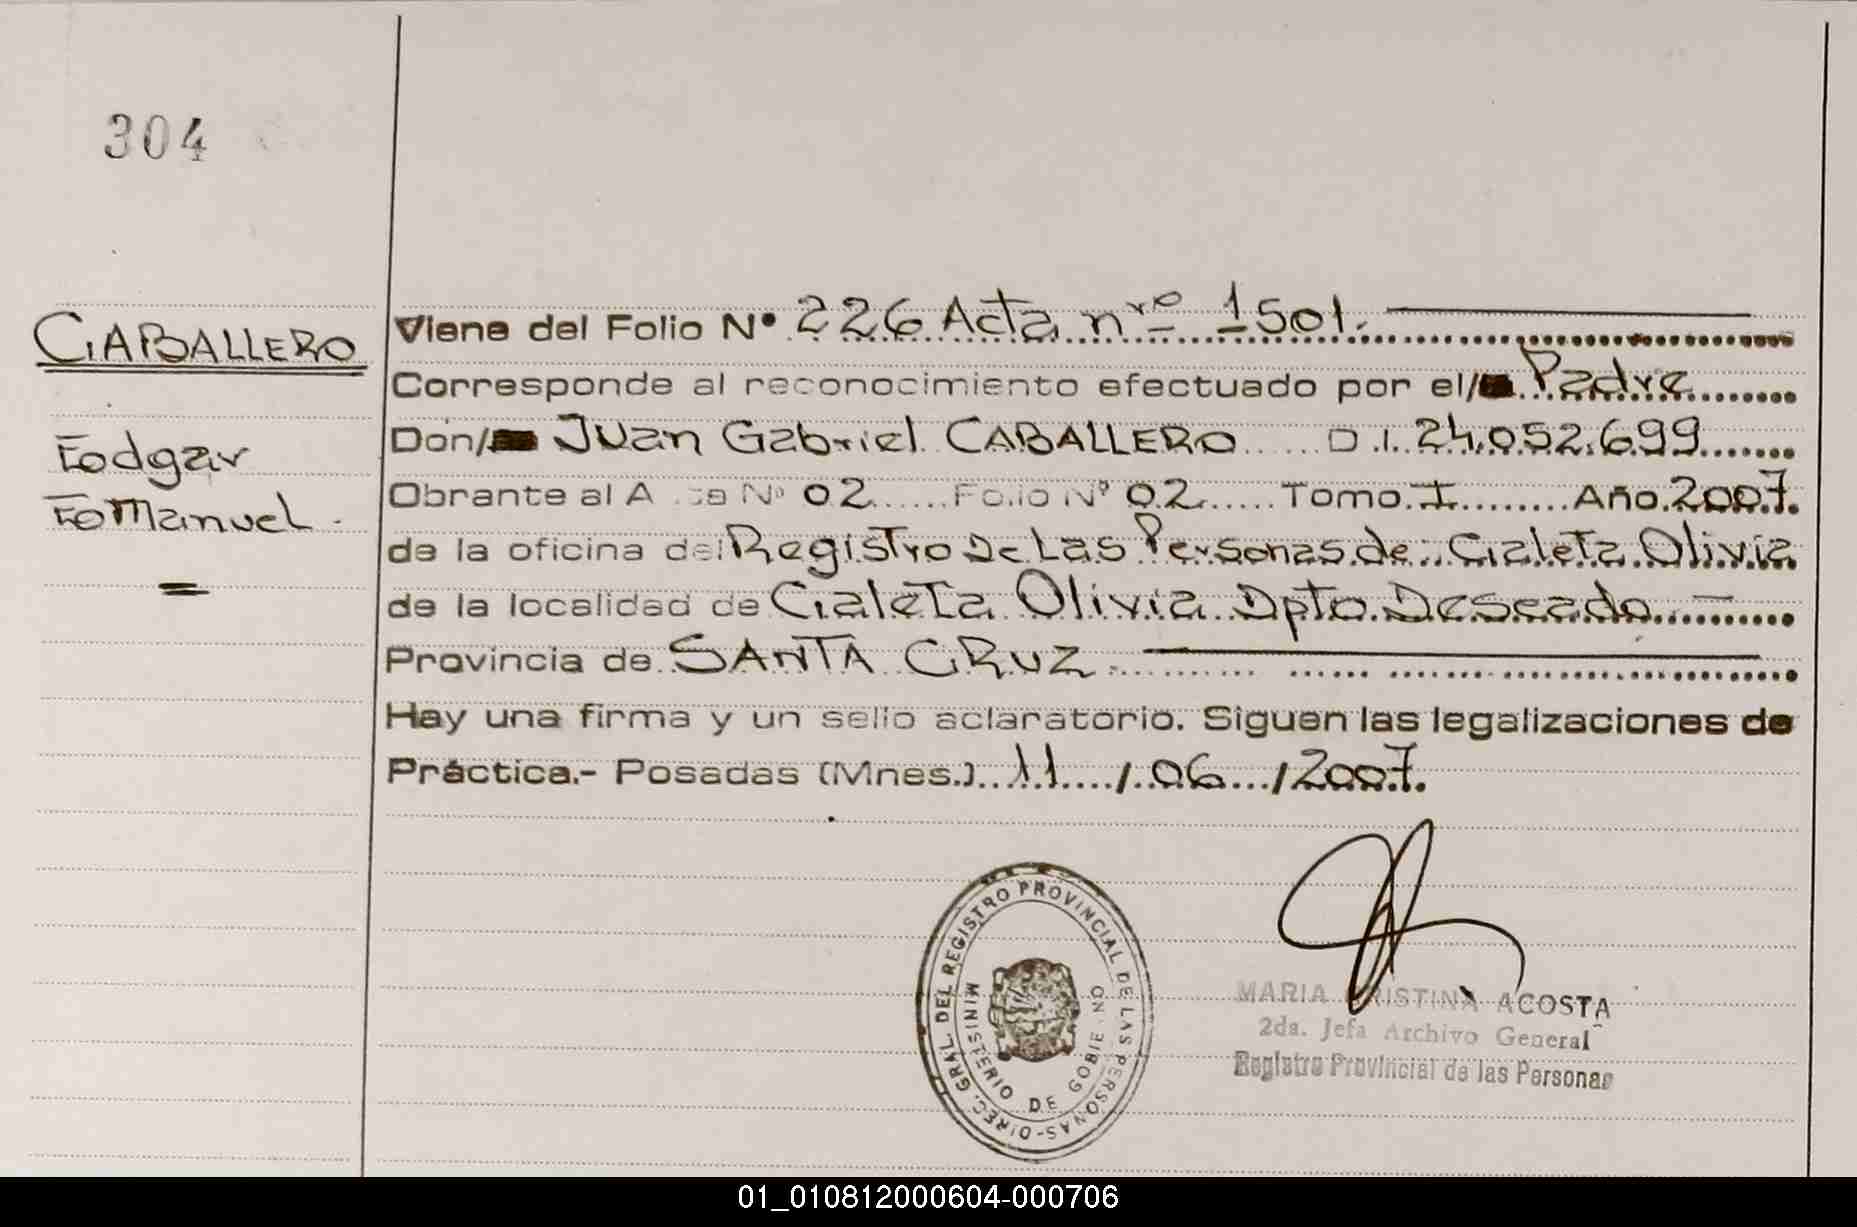 304
CABALLERO
Edgar
Emanuel.
=
Viene del Folio Nº 226 Acta nro 1501.
Corresponde al reconocimiento efectuado por el/ Padre
Don/ Juan Gabriel CABALLERO D.I. 24.052.699
Obrante al Acta Nº 02 Folio Nº 02 Tomo I Año 2007.
de la oficina del Registro De Las Personas de Caleta Olivia
de la localidad de Caleta Olivia Dpto Deseado
Provincia de SANTA CRUZ.
Hay una firma y un sello aclaratorio. Siguen las legalizaciones de
Práctica.- Posadas (Mnes.) 11 / 06 / 2007.
DIREC. GRAL. DEL REGISTRO PROVINCIAL DE LAS PERSONAS-
MINISTERIO DE GOBIERNO
MARIA CRISTINA ACOSTA
2da. Jefa Archivo General
Registro Provincial de las Personas
01_010812000604-000706